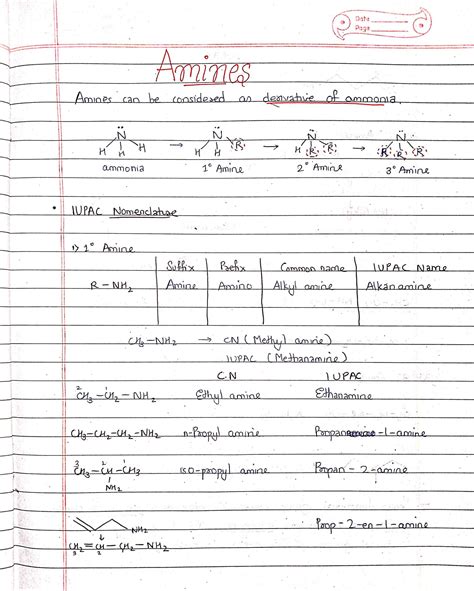 Date
Page
Amines
Amines can be considered as derivative of ammonia.
N̈ → N̈ → N̈ → N̈
H H H   H H R   H R R   R R R
ammonia   1° Amine   2° Amine   3° Amine
• IUPAC Nomenclature
1) 1° Amine
Suffix   Prefix   Common name   IUPAC Name
R – NH₂   Amine   Amino   Alkyl amine   Alkanamine
CH₃ – NH₂ → CN (Methyl amine)
IUPAC (Methanamine)
CN   IUPAC
²CH₃ – ¹CH₂ – NH₂   Ethyl amine   Ethanamine
CH₃ – CH₂ – CH₂ – NH₂   n-Propyl amine   Propan-1-amine
³CH₃ – ²CH – ¹CH₃   iso-propyl amine   Propan – 2-amine
NH₂
NH₂   Prop – 2-en – 1-amine
↓
CH₂ = CH – CH₂ – NH₂
3 2 1